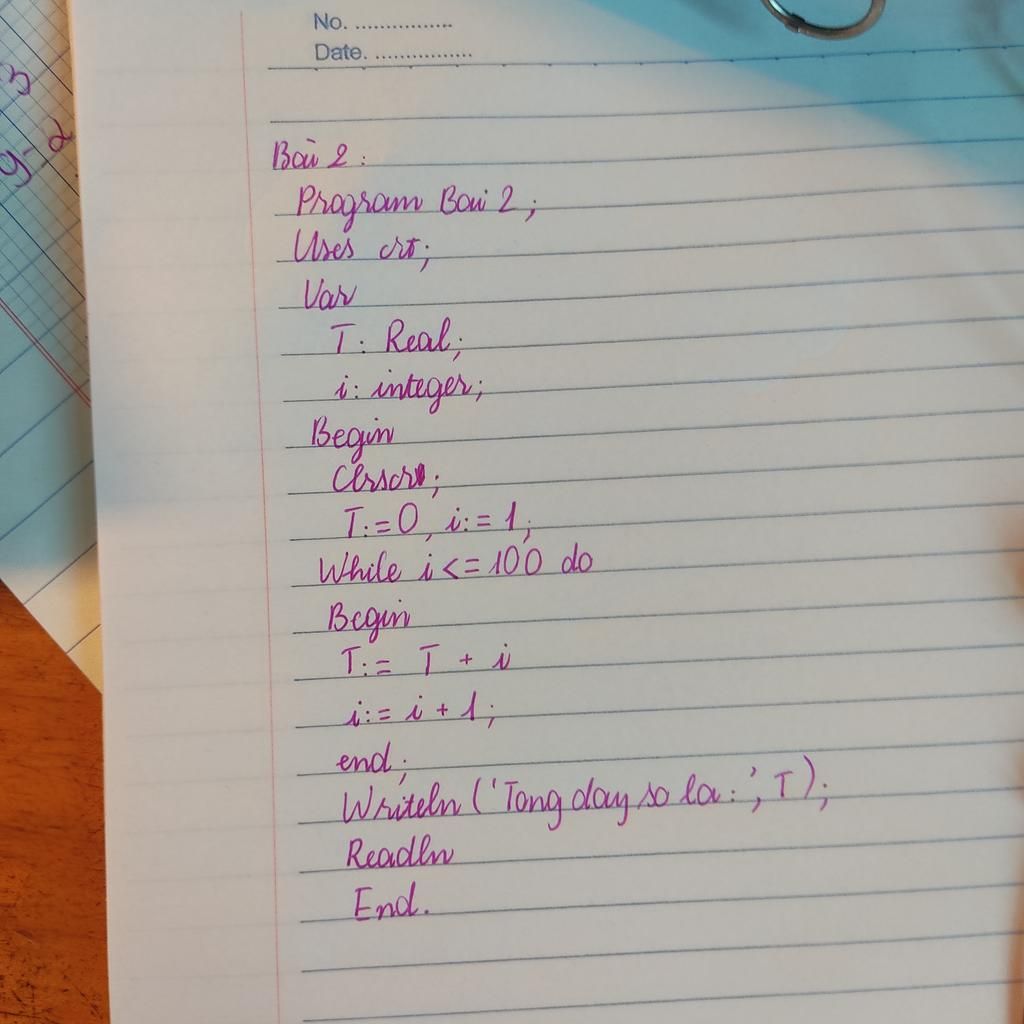 No. ................
Date. ................
3
2
9
Bài 2 :
Program Bai 2 ;
Uses crt;
Var
T : Real;
i : integer;
Begin
Clrscr;
T:=0, i:= 1;
While i <= 100 do
Begin
T:= T + i
i:= i + 1;
end;
Writeln ('Tong day so la : ', T );
Readln
End.